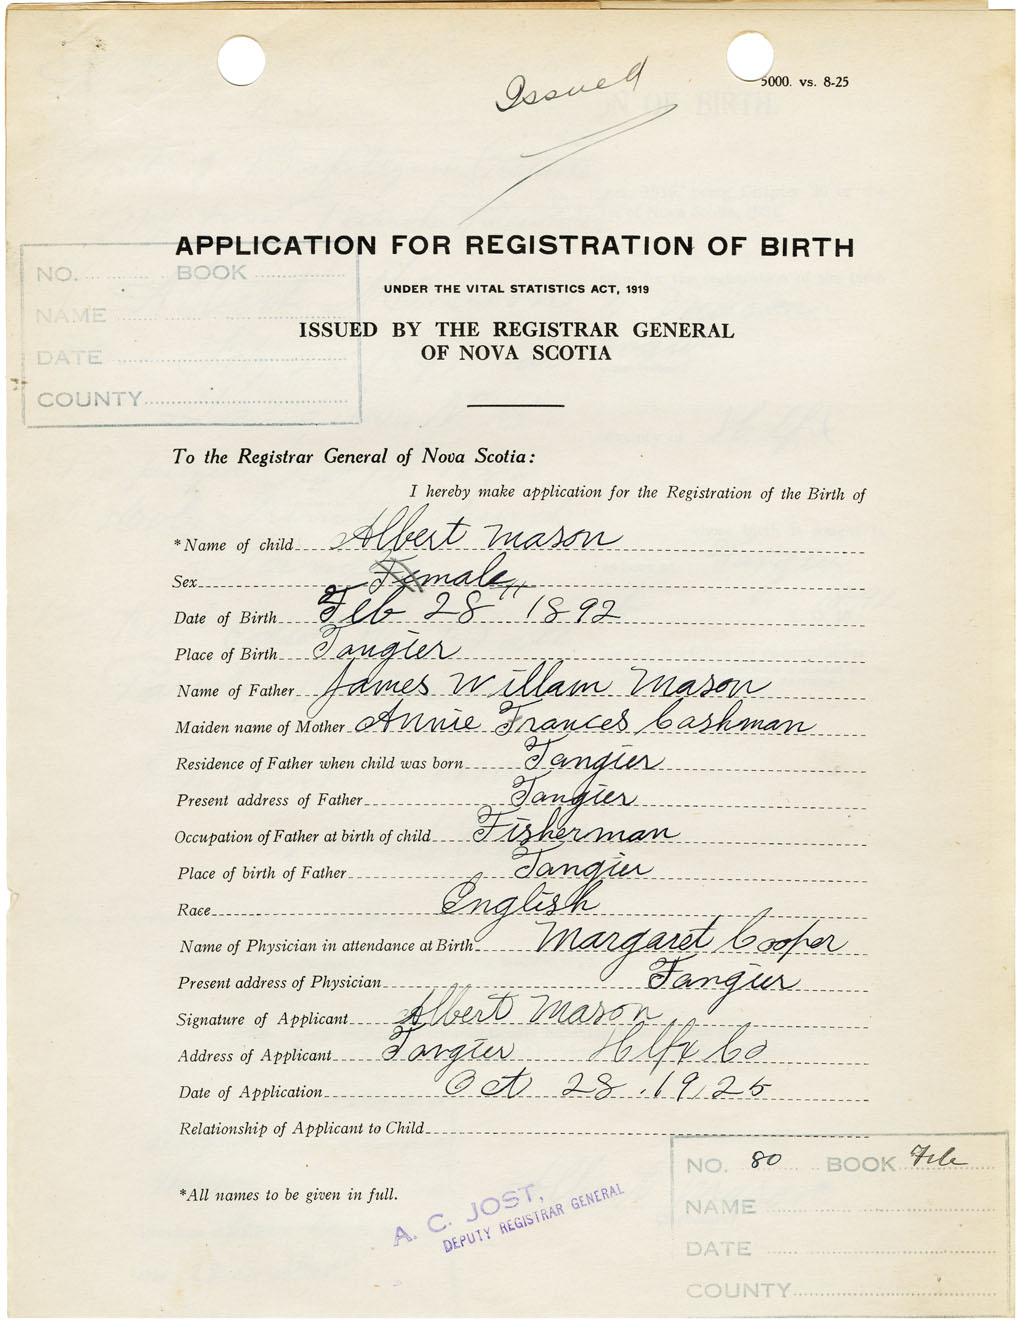 Issued
5000. vs. 8-25
APPLICATION FOR REGISTRATION OF BIRTH
UNDER THE VITAL STATISTICS ACT, 1919
ISSUED BY THE REGISTRAR GENERAL
OF NOVA SCOTIA
NO. BOOK
NAME
DATE
COUNTY
To the Registrar General of Nova Scotia:
I hereby make application for the Registration of the Birth of
*Name of child Albert Mason
Sex Female
Date of Birth Feb 28th 1892
Place of Birth Tangier
Name of Father James Willam Mason
Maiden name of Mother Annie Frances Cashman
Residence of Father when child was born Tangier
Present address of Father Tangier
Occupation of Father at birth of child Fisherman
Place of birth of Father Tangier
Race English
Name of Physician in attendance at Birth Margaret Cooper
Present address of Physician Tangier
Signature of Applicant Albert Mason
Address of Applicant Tangier Hlfx Co
Date of Application Oct 28. 1925
Relationship of Applicant to Child
*All names to be given in full.
A. C. JOST,
DEPUTY REGISTRAR GENERAL
NO. 80 BOOK File
NAME
DATE
COUNTY